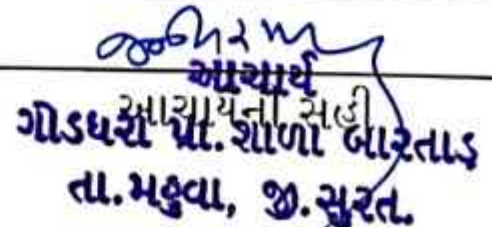 આચાર્ય
આચાર્યની સહી
ગોડધરા પ્રા. શાળા બારતાડ
તા. મહુવા, જી. સુરત.